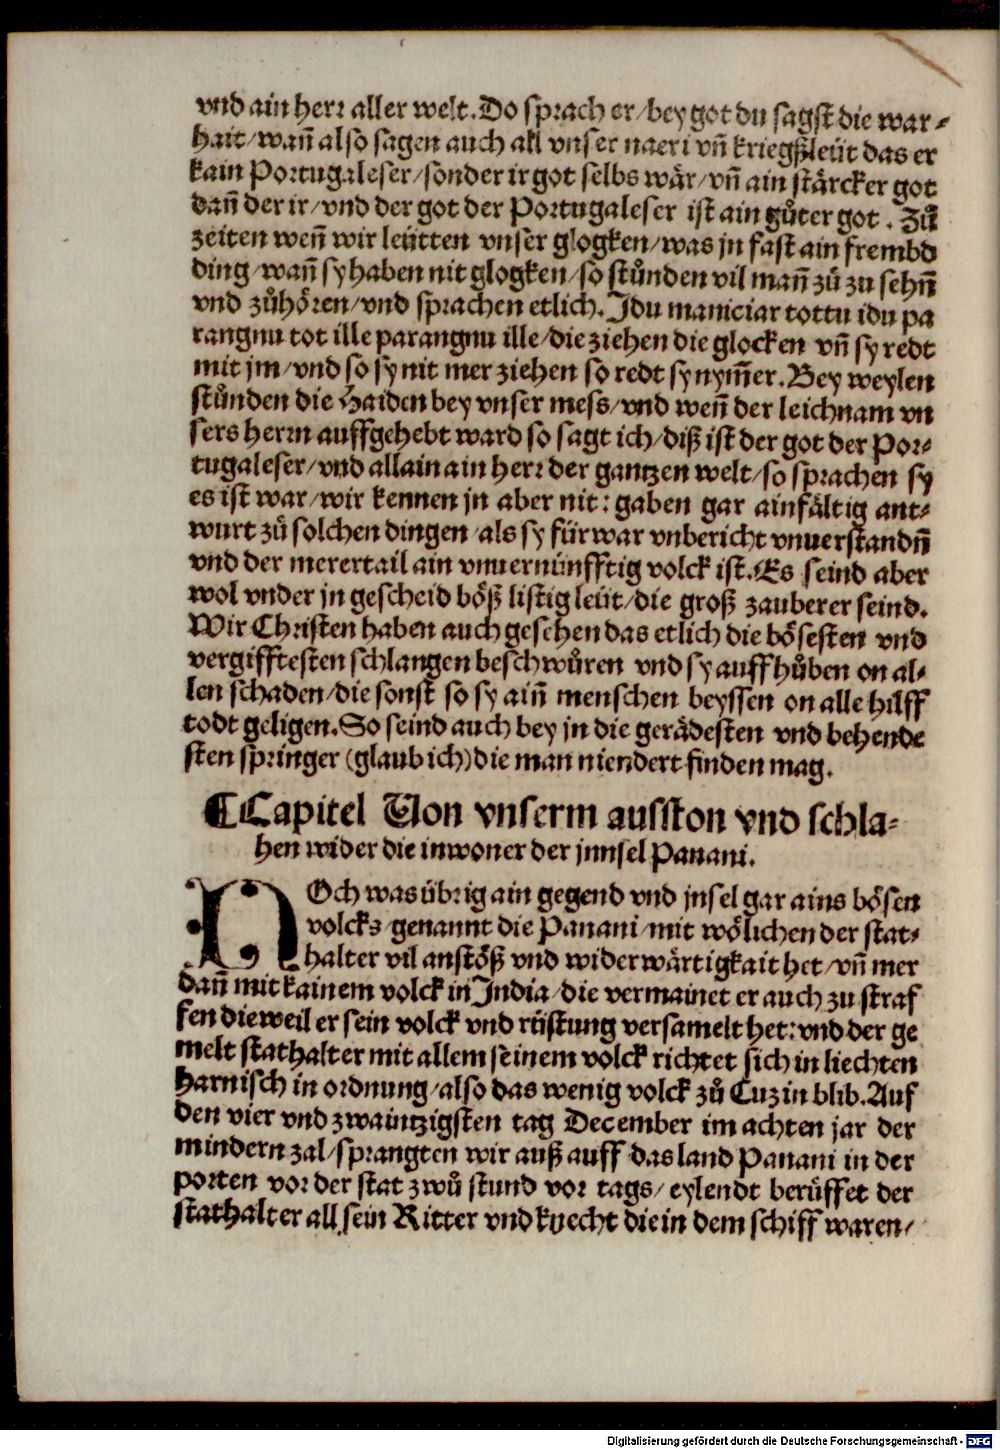 vnd ain herr aller welt. Do sprach er/bey got du sagst die war⸗
hait/wañ also sagen auch all vnser naeri vñ kriegßleüt das er
kain Portugaleser/sonder ir got selbs wär/vñ ain stärcker got
dañ der ir/vnd der got der Portugaleser ist ain gůter got. Zů
zeiten weñ wir leütten vnser glogken/was jn fast ain frembd
ding/wañ sy haben nit glogken/so stůnden vil mañ zů zu sehñ
vnd zůhören/vnd sprachen etlich. Idu maniciar tottu idu pa
rangnu tot ille parangnu ille/die ziehen die glocken vñ sy redt
mit jm/vnd so sy nit mer ziehen so redt sy nym̃er. Bey weylen
stůnden die Haiden bey vnser mess/vnd weñ der leichnam vn
sers herrn auffgehebt ward so sagt ich/diß ist der got der Por⸗
tugaleser/vnd allain ain herr der gantzen welt/so sprachen sy
es ist war/wir kennen jn aber nit: gaben gar ainfältig ant⸗
wurt zů solchen dingen/als sy für war vnbericht vnuerstandñ
vnd der merertail ain vnuernünfftig volck ist. Es seind aber
wol vnder jn gescheid böß listig leüt/die groß zauberer seind.
Wir Christen haben auch gesehen das etlich die bösesten vnd
vergifftesten schlangen beschwůren vnd sy auffhůben on al⸗
len schaden/die sonst so sy aiñ menschen beyssen on alle hilff
todt geligen. So seind auch bey jn die gerädesten vnd behende
sten springer (glaub ich) die man niendert finden mag.
¶Capitel Von vnserm ausston vnd schla⸗
hen wider die inwoner der jnnsel Panani.
NOch was übrig ain gegend vnd jnsel gar ains bösen
volcks/genannt die Panani/mit wölichen der stat⸗
halter vil anstöß vnd widerwärtigkait het/vñ mer
dañ mit kainem volck in India/die vermainet er auch zu straf
fen dieweil er sein volck vnd rüstung versamelt het: vnd der ge
melt stathalter mit allem seinem volck richtet sich in liechten
harnisch in ordnung/also das wenig volck zů Cuzin blib. Auf
den vier vnd zwaintzigsten tag December im achten jar der
mindern zal/sprangten wir auß auff das land Panani in der
porten vor der stat zwů stund vor tags/eylendt berüffet der
stathalter all sein Ritter vnd knecht die in dem schiff waren/
Digitalisierung gefördert durch die Deutsche Forschungsgemeinschaft - DFG